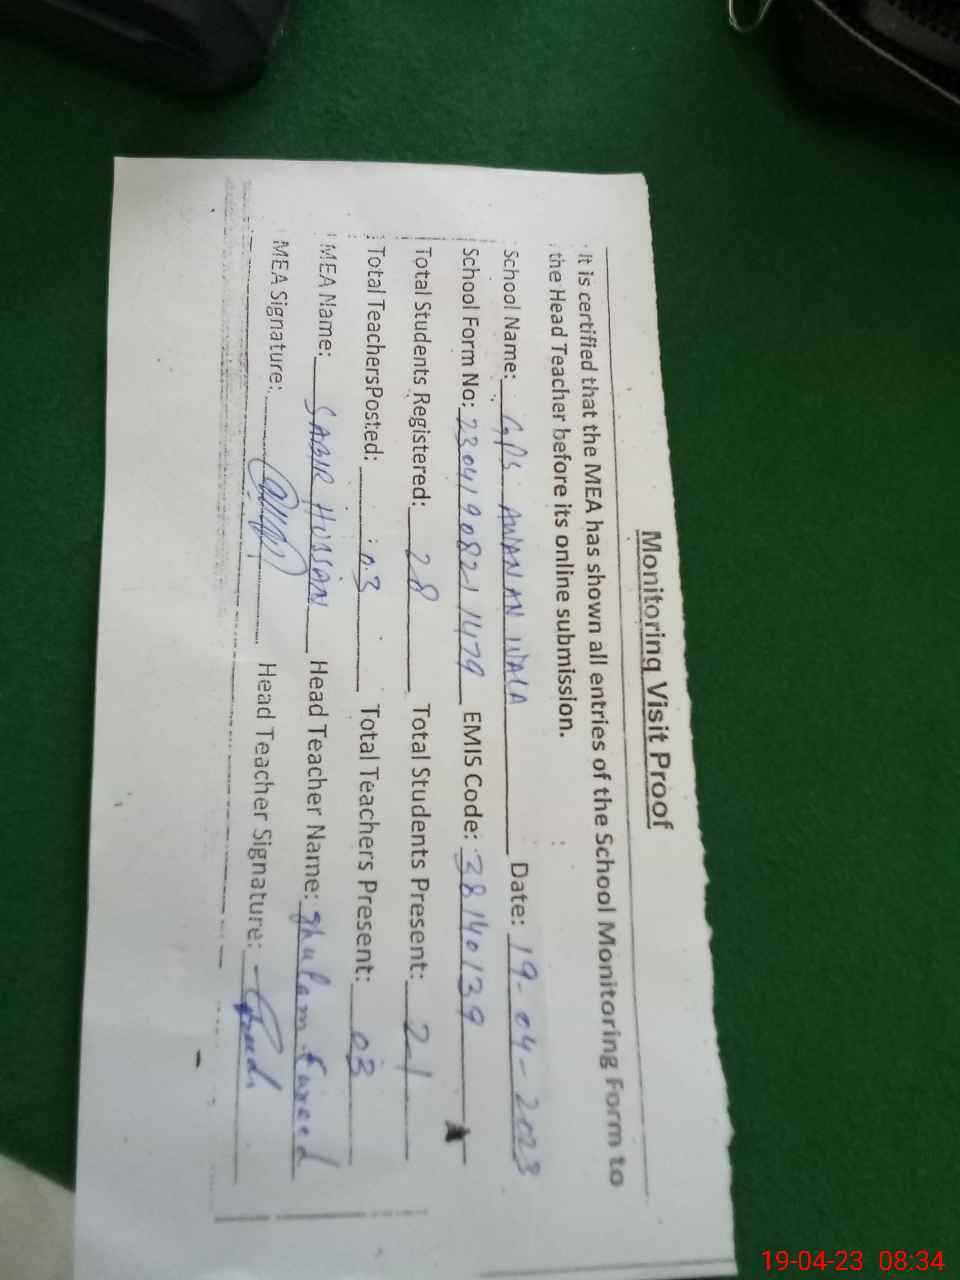 Monitoring Visit Proof
It is certified that the MEA has shown all entries of the School Monitoring Form to
the Head Teacher before its online submission.
School Name: GPS AWANAN WALA Date: 19-04-2023
School Form No: 23041908211479 EMIS Code: 38140139
Total Students Registered: 28 Total Students Present: 21
Total TeachersPosted: 03 Total Teachers Present: 03
MEA Name: SABIR HUSSAN Head Teacher Name: Ghulam Fareed
MEA Signature: Head Teacher Signature:
19-04-23 08:34